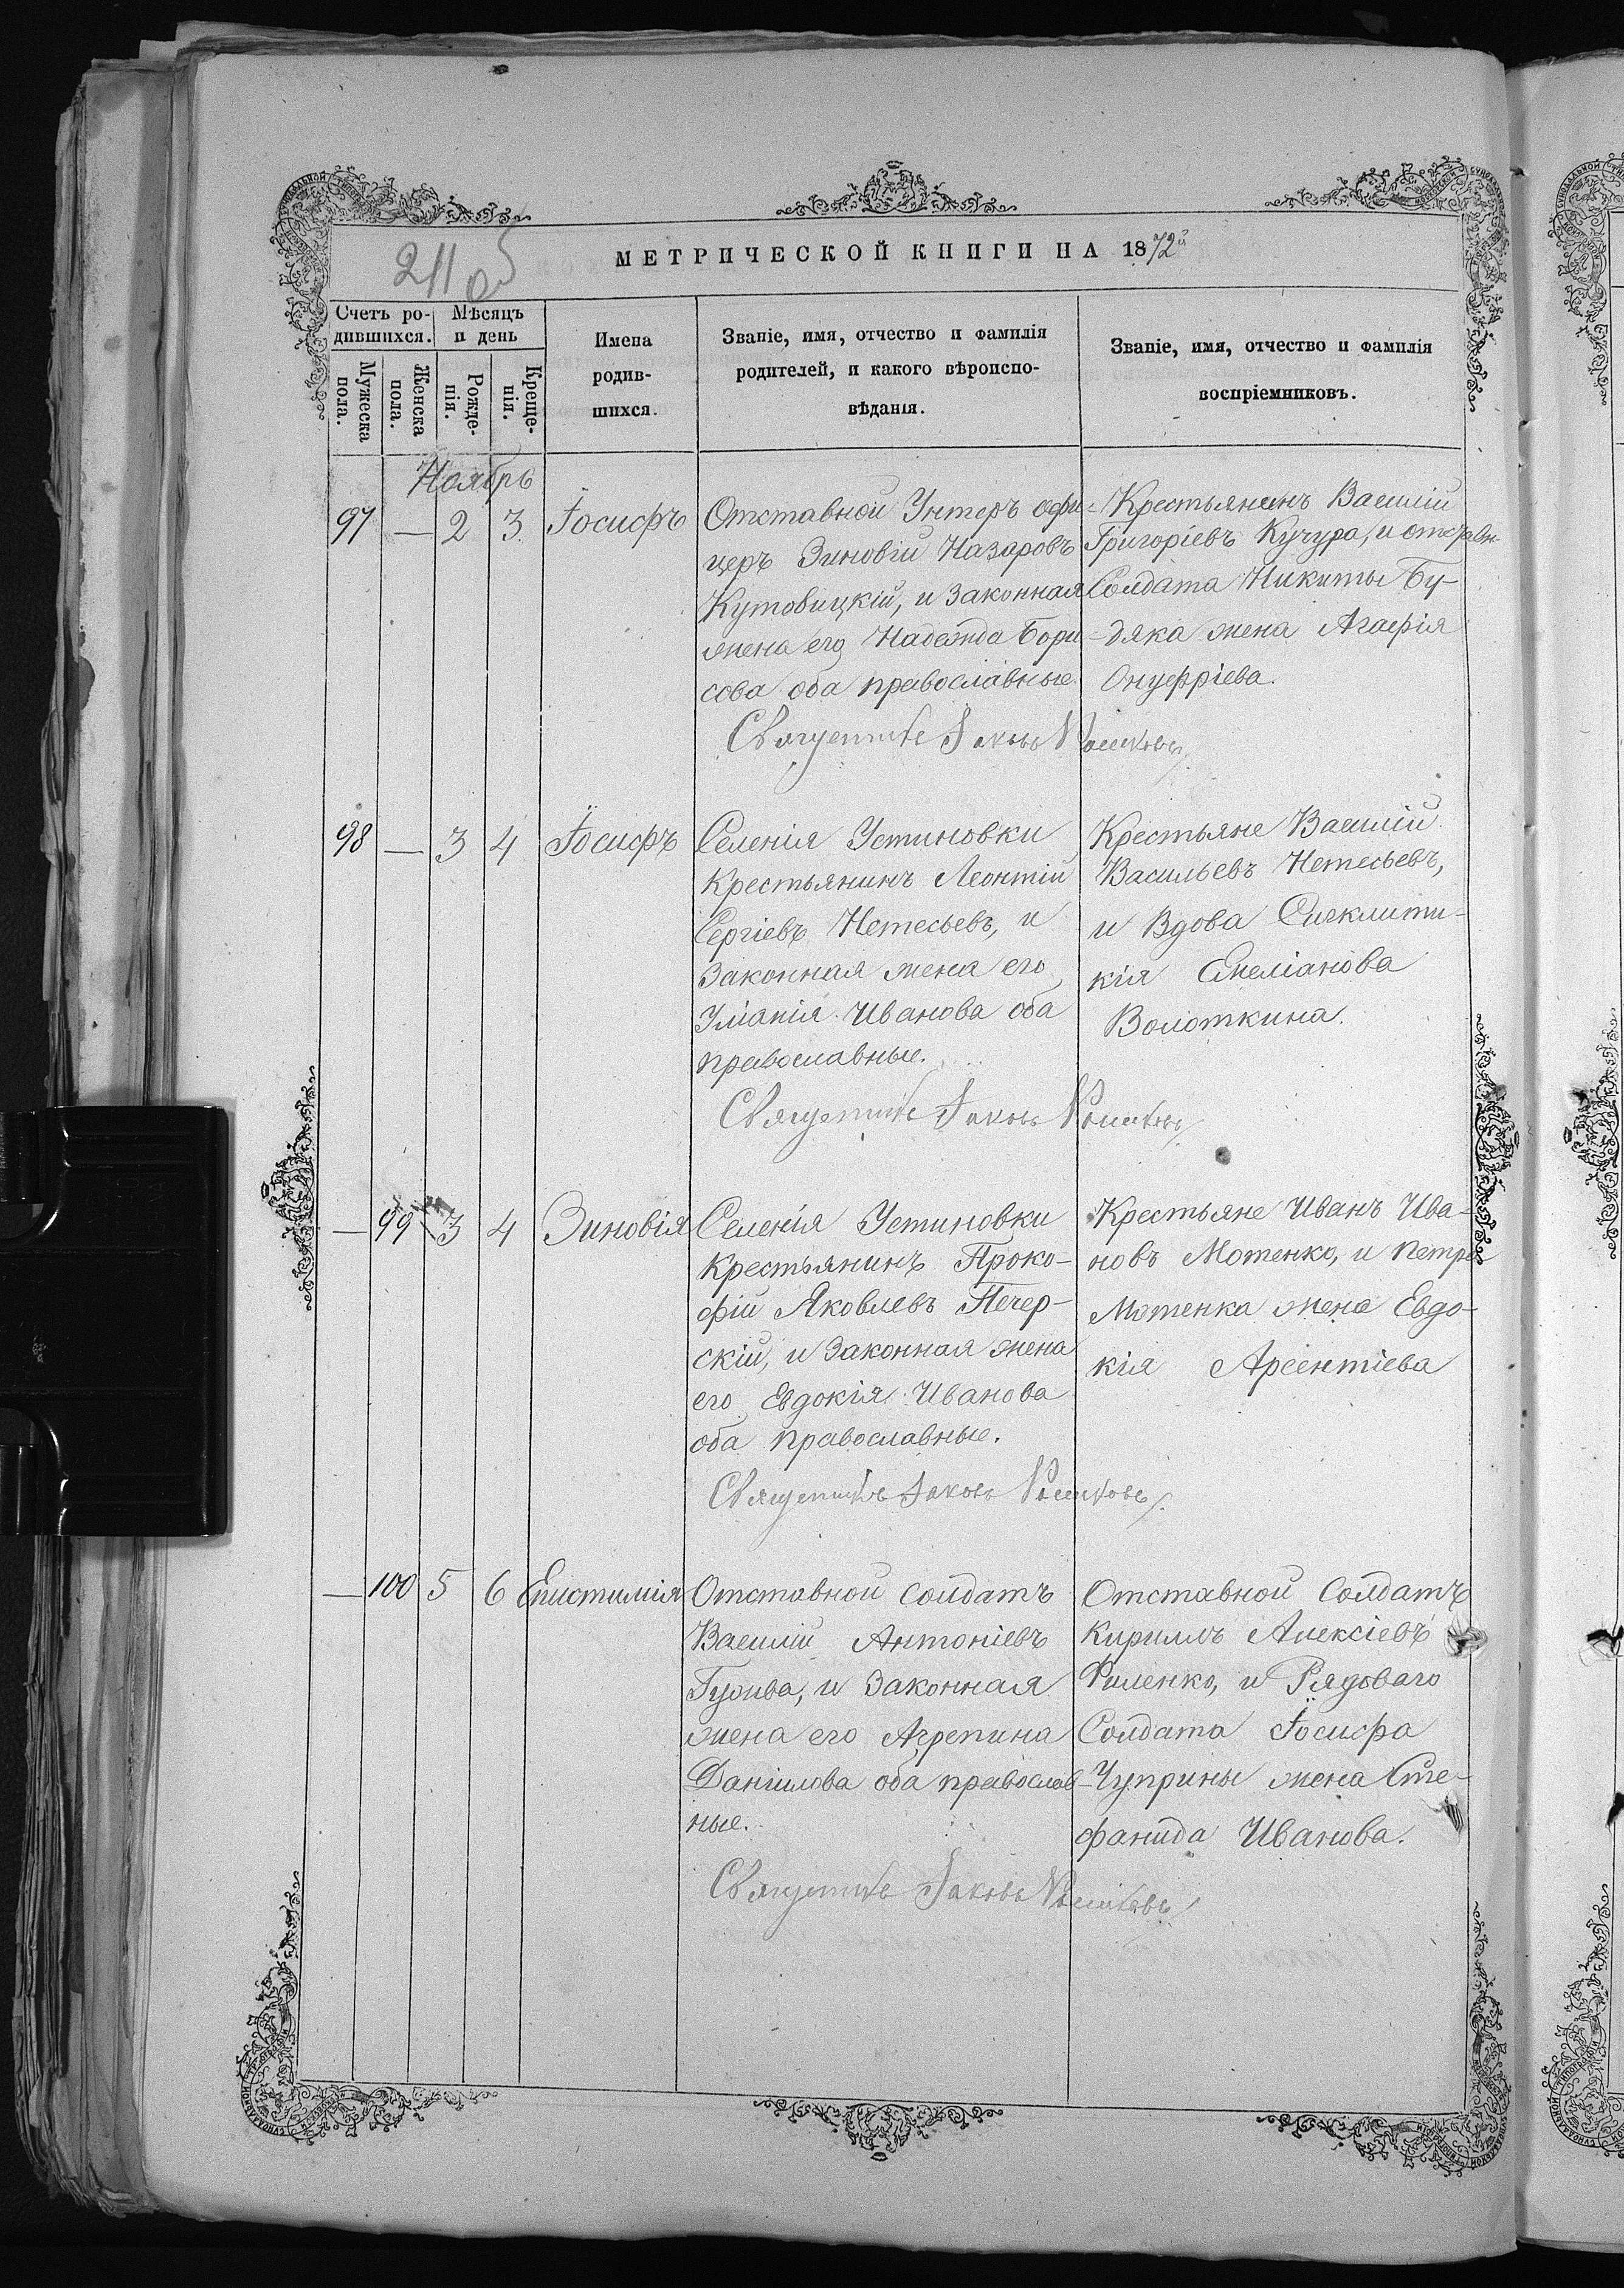 211 об
МЕТРИЧЕСКОЙ КНИГИ НА 1872й
Счетъ ро-
дившихся.
Мѣсяцъ
и день
Мужеска
пола.
Женска
пола.
Рожде-
нія.
Креще-
нія.
Имена
родив-
шихся.
Званіе, имя, отчество и фамилія
родителей, и какого вѣроиспо-
вѣданія.
Званіе, имя, отчество и фамилія
воспріемниковъ.
Ноябрь
97 — 2 3. Іосифъ
Отставной Унтеръ офи-
церъ Зиновій Назаровъ
Кутовицкій, и законная
жена его Надежда Бори-
сова оба православные.
Крестьянинъ Василій
Григоріевъ Кучура, и отставн.
Солдата Никиты Бу-
дяка жена Агафія
Онуфріева.
Священникъ Іаковъ
98 — 3 4 Іосифъ
Селенія Устиновки
Крестьянинъ Леонтій
Сергіевъ Нетесьевъ, и
Законная жена его
Уліанія Иванова оба
православные.
Крестьяне Василій
Васильевъ Нетесьевъ,
и Вдова Сигклити-
кія Емеліанова
Волоткина.
Священникъ Іаковъ
— 99 3 4 Зиновія
Селенія Устиновки
Крестьянинъ Проко-
фій Яковлевъ Печер-
скій, и Законная жена
его Евдокія Иванова
оба православные.
Крестьяне Иванъ Ива-
новъ Мотенко, и Петра
Мотенка жена Евдо-
кія Арсентіева
Священникъ Іаковъ
— 100 5 6 Епистимія
Отставной солдатъ
Василій Антоніевъ
и Законная
жена его Агрепина
Даніилова оба православ-
ные.
Отставной Солдатъ
Кириллъ Алексіевъ
Филенко, и Рядоваго
Солдата Іосифа
Чуприны жена Сте-
фанида Иванова.
Священникъ Іаковъ